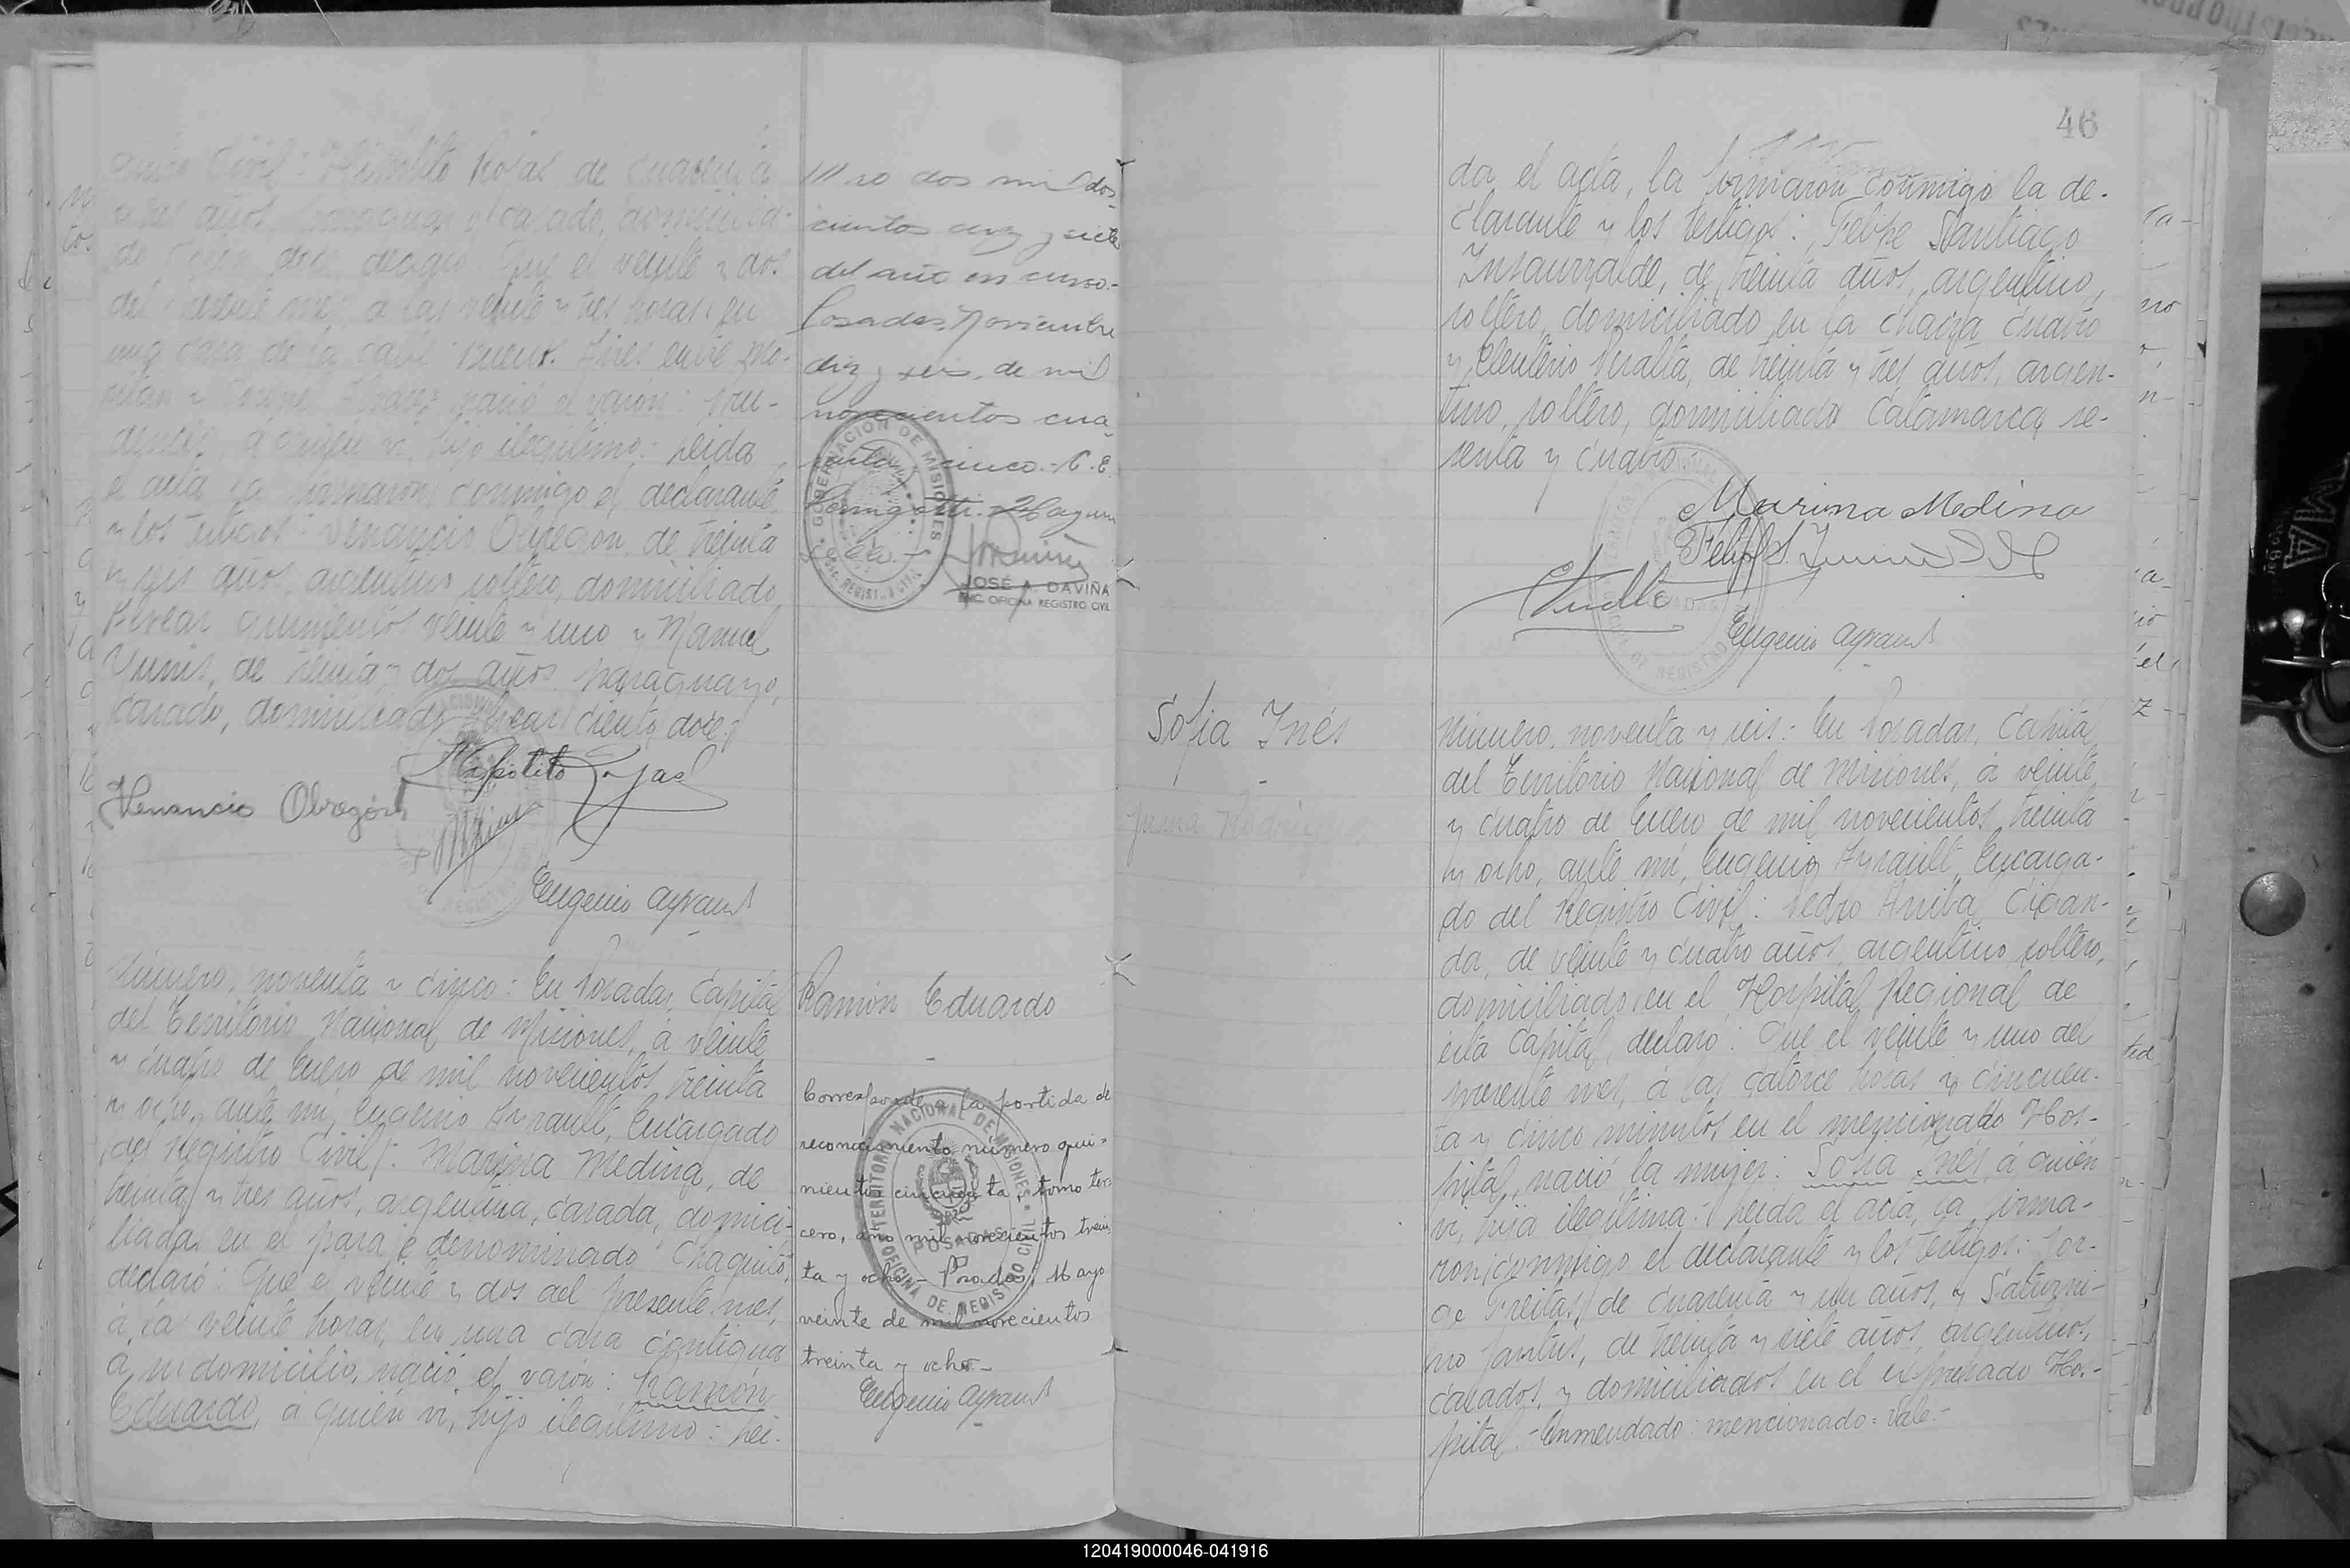 Civil: Hipólito Rojas de cuarenta
años, casado, domicilia-
declaró: Que el veinte y dos
del presente mes, a las veinte y tres horas, en
una casa de la calle Buenos Aires entre
nació el varón: Pru-
dencio, á quien vi, hijo ilegítimo: Leida
el acta la firmaron conmigo el declarante
y los testigos: Venancio Obregón, de treinta
y seis años, argentino, soltero, domiciliado
Alvear quinientos veinte y uno y Manuel
Yunis, de treinta y dos años, paraguayo,
casado, domiciliado Alvear ciento doce.-
Hipólito Rojas
Venancio Obregón
Eugenio Ayrault
Número, noventa y cinco: En Posadas, Capital
del Territorio Nacional de Misiones, á veinte
y cuatro de Enero de mil novecientos treinta
y ocho, ante mí, Eugenio Ayrault, Encargado
del Registro Civil: Marina Medina, de
treinta y tres años, argentina, casada, domici-
liada en el paraje denominado Chaquito,
declaró: Que el veinte y dos del presente mes,
á las veinte horas, en una casa contigua
á su domicilio, nació el varón: Ramón
Eduardo, á quién vi, hijo ilegítimo: Lei-
dos mil dos-
cientos diez y siete
del año en curso.-
Posadas, Noviembre
diez y seis, de mil
novecientos cua-
renta y cinco.-
GOBERNACION DE MISIONES
JOSÉ A. DAVIÑA
ENC. OFICINA REGISTRO CIVIL
Ramón Eduardo
-
Corresponde a la partida de
reconocimiento número qui-
nientos cincuenta, tomo ter-
cero, año mil novecientos trein-
ta y ocho.- Posadas, Mayo
veinte de mil novecientos
treinta y ocho.-
Eugenio Ayrault
TERRITORIO NACIONAL DE MISIONES
POSADAS
OFICINA DE REGISTRO CIVIL
46
da el acta, la firmaron conmigo la de-
clarante y los testigos: Felipe Santiago
Insaurralde, de treinta años, argentino,
soltero, domiciliado en la chacra cuatro
y Eleuterio Peralta, de treinta y tres años, argen-
tino, soltero, domiciliado Catamarca se-
senta y cuatro.-
Marina Medina
Felipe S.
Eugenio Ayrault
Sofia Inés
-
Número, noventa y seis: En Posadas, Capital
del Territorio Nacional de Misiones, á veinte
y cuatro de Enero de mil novecientos treinta
y ocho, ante mí, Eugenio Ayrault, Encarga-
do del Registro Civil: Pedro Arriba Cigan-
da, de veinte y cuatro años, argentino, soltero,
domiciliado en el Hospital Regional de
esta Capital, declaró: Que el veinte y uno del
presente mes, á las catorce horas y cincuen-
ta y cinco minutos, en el mencionado Hos-
pital, nació la mujer: Sofia Inés, á quién
vi, hija ilegítima: Leida el acta, la firma-
ron conmigo el declarante y los testigos: Jor-
ge Freitas, de cuarenta y un años, y Saturni-
no de treinta y siete años, argentinos,
casados, y domiciliados en el expresado Hos-
pital.- Enmendado: mencionado = Vale.-
120419000046-041916